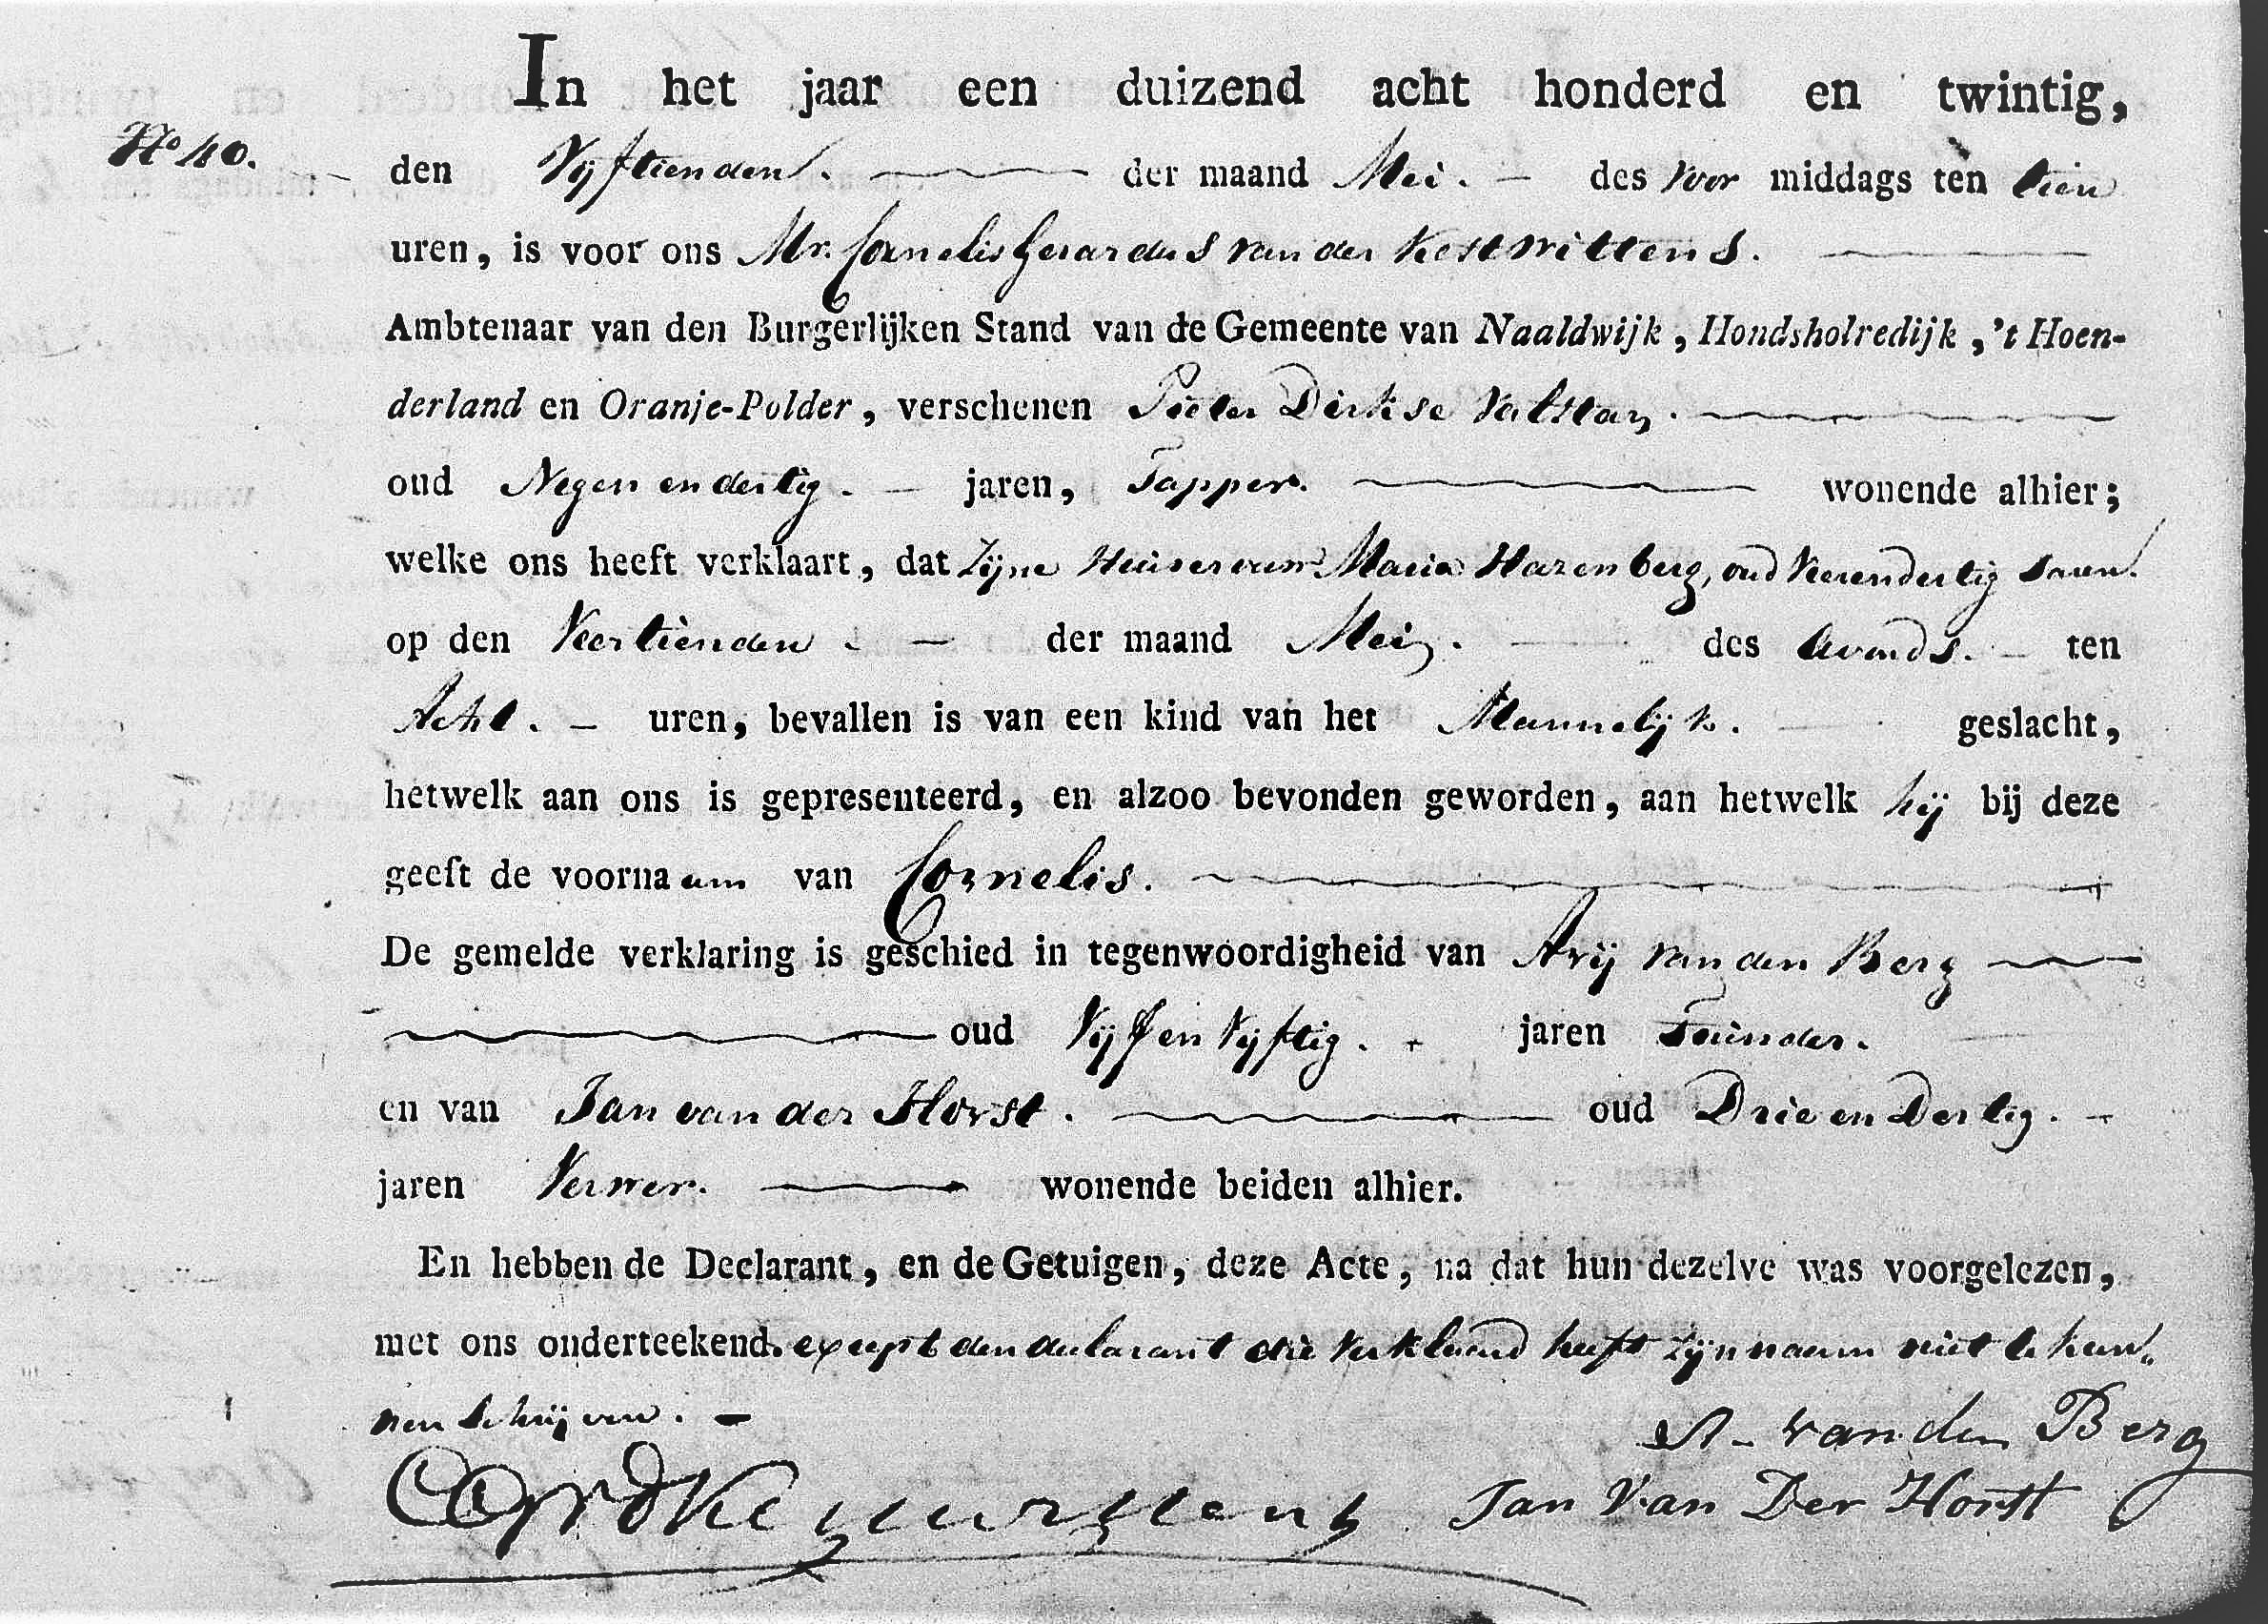 In het jaar een duizend acht honderd en twintig,
No 40. den Vijftienden. der maand Mei. des voor middags ten tien
uren, is voor ons Mr. Cornelis Gerardus van der
Ambtenaar van den Burgerlijken Stand van de Gemeente van Naaldwijk, Hondsholredijk, 't Hoen-
derland en Oranje-Polder, verschenen Pieter Dirkse Valstar.
oud Negen en dertig. jaren, Tapper. wonende alhier;
welke ons heeft verklaart, dat Zijne Huisvrouw Maria Harenberg, oud Vierendertig Jaren.
op den Veertienden der maand Mei. des Avonds. ten
Acht. uren, bevallen is van een kind van het Mannelijk. geslacht,
hetwelk aan ons is gepresenteerd, en alzoo bevonden geworden, aan hetwelk hij bij deze
geeft de voornaam van Cornelis.
De gemelde verklaring is geschied in tegenwoordigheid van Arij van den Berg
oud Vijf en Vijftig. jaren Tuinder.
en van Jan van der Horst. oud Drie en Dertig.
jaren Verwer. wonende beiden alhier.
En hebben de Declarant, en de Getuigen, deze Acte, na dat hun dezelve was voorgelezen,
met ons onderteekend. except den declarant die verklaard heeft zijn naam niet te kun„
nen schrijven.
A. van den Berg
Jan Van Der Horst